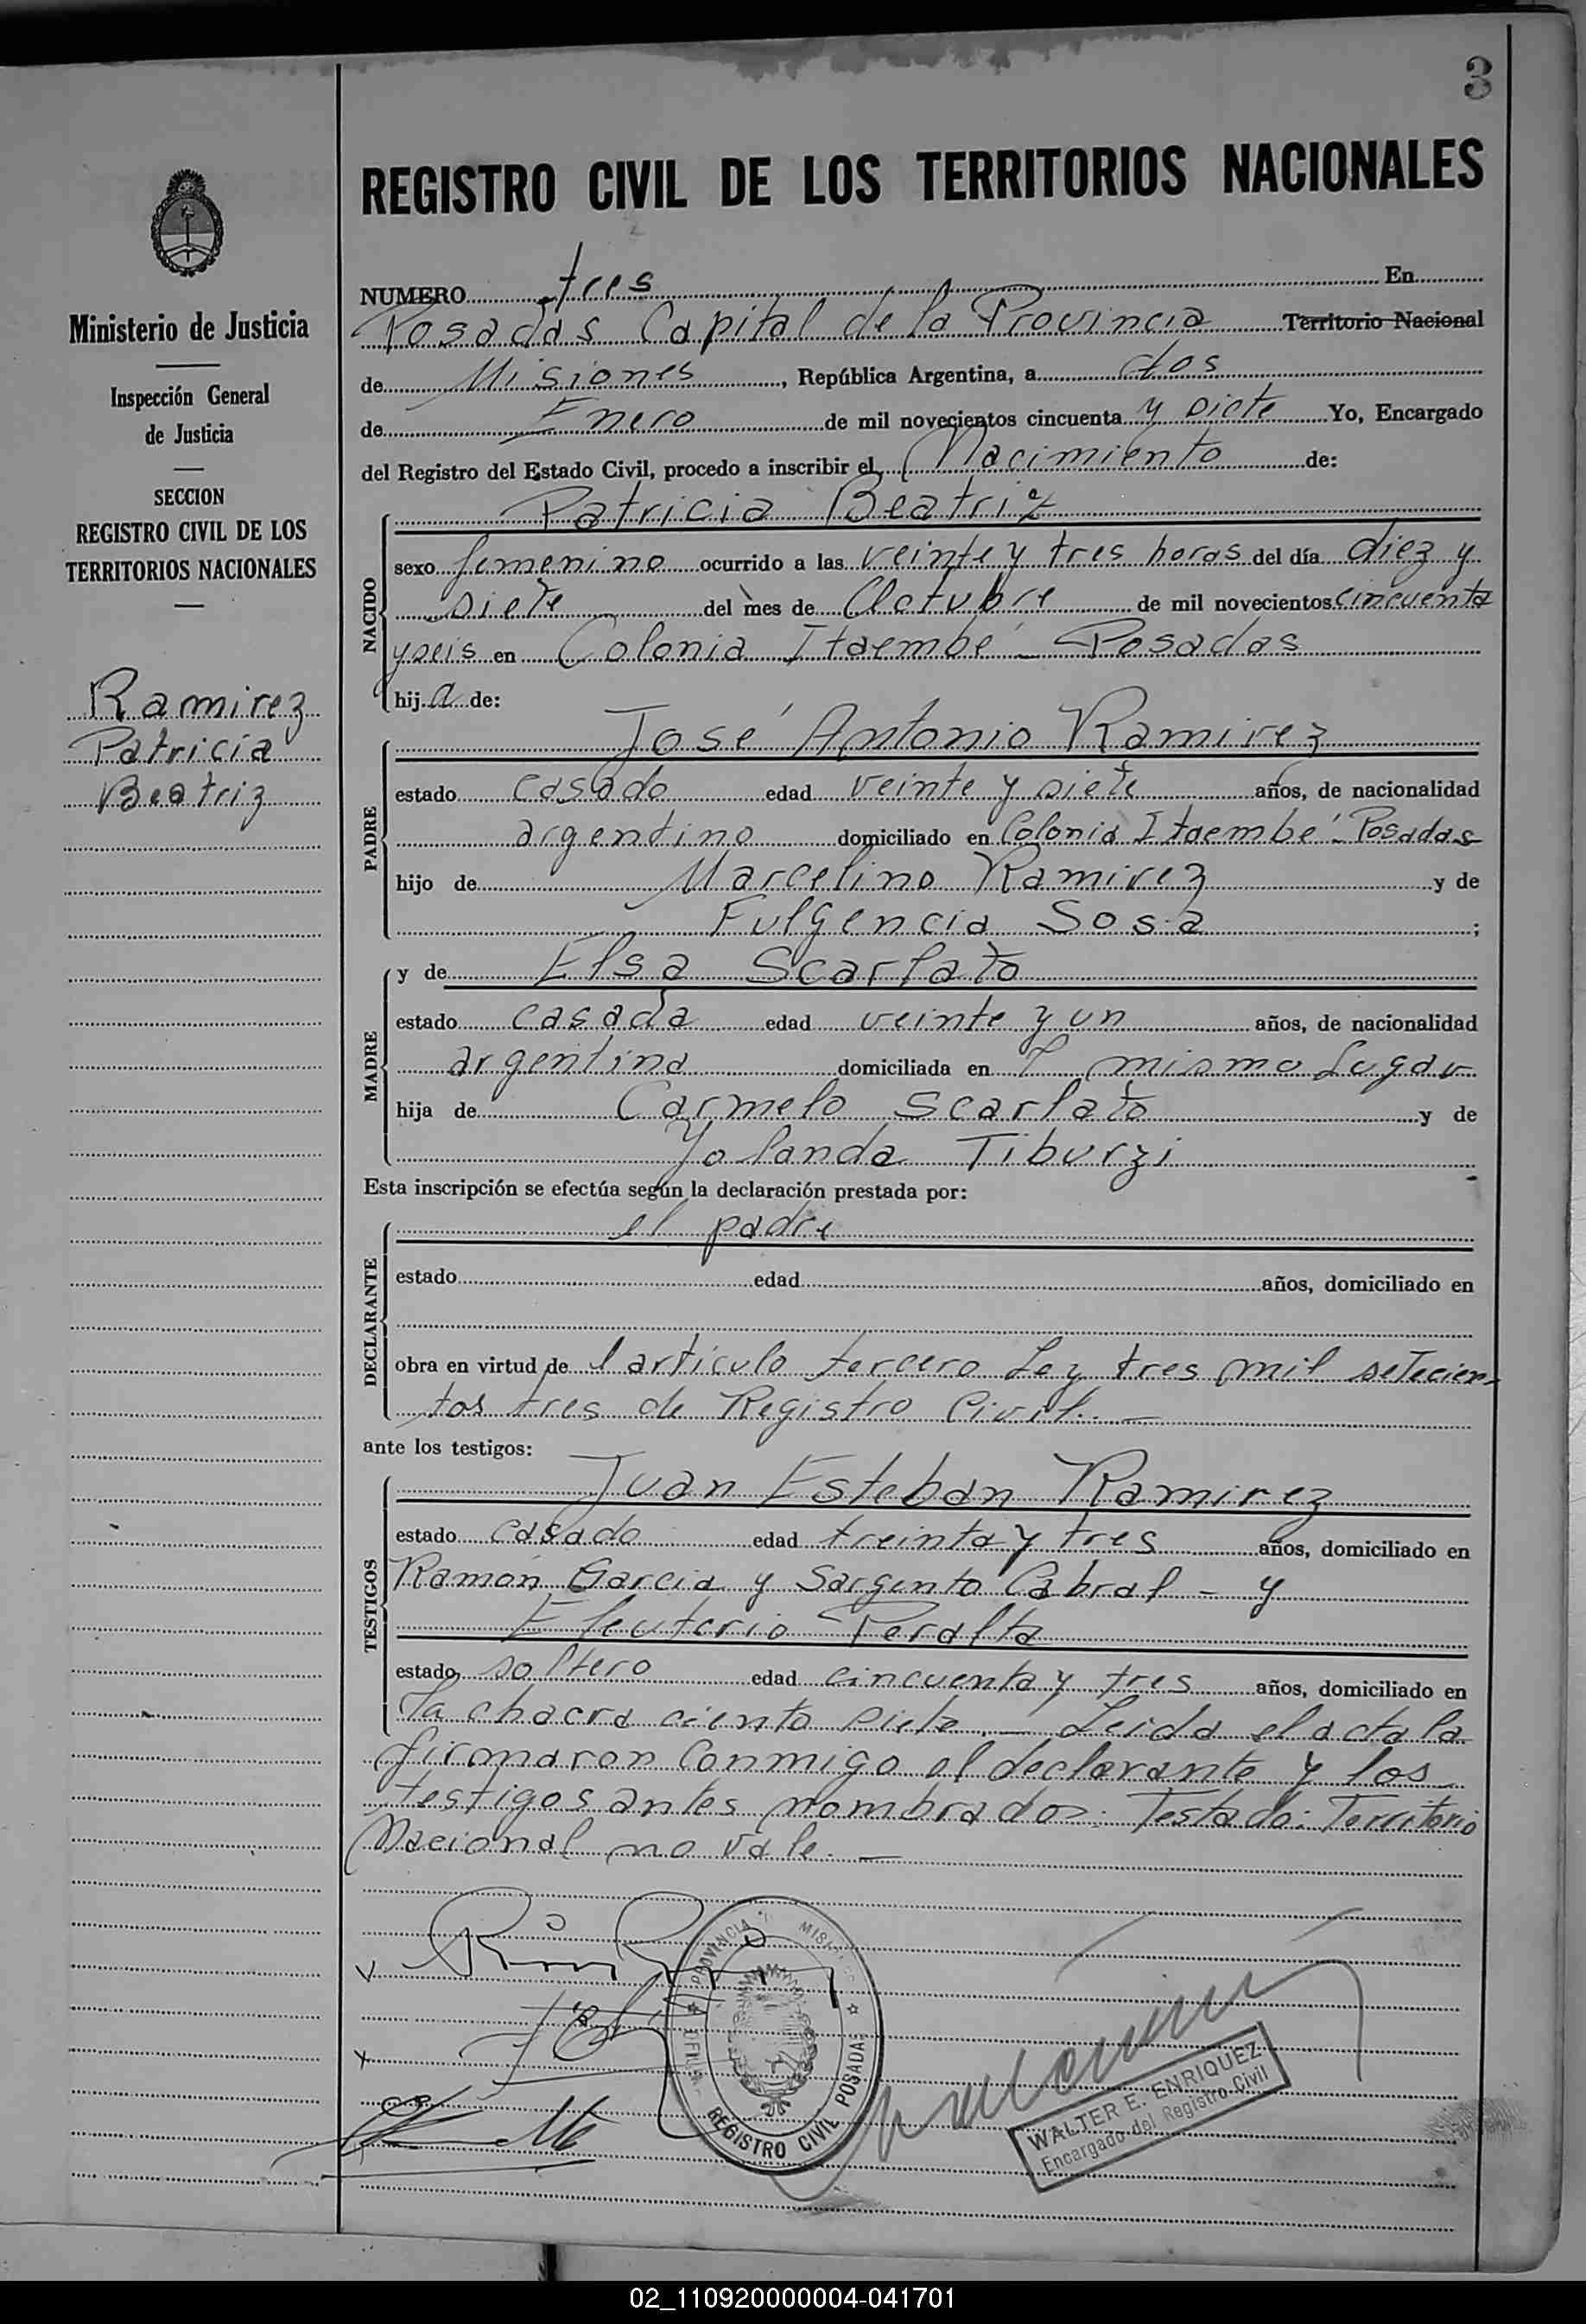 3
REGISTRO CIVIL DE LOS TERRITORIOS NACIONALES
Ministerio de Justicia
Inspección General
de Justicia
SECCION
REGISTRO CIVIL DE LOS
TERRITORIOS NACIONALES
Ramirez
Patricia
Beatriz
NUMERO tres En
Posadas Capital de la Provincia Territorio Nacional
de Misiones, República Argentina, a dos
de Enero de mil novecientos cincuenta y siete Yo, Encargado
del Registro del Estado Civil, procedo a inscribir el Nacimiento de:
NACIDO
Patricia Beatriz
sexo femenino ocurrido a las veinte y tres horas del día diez y
siete del mes de Octubre de mil novecientos cincuenta
y seis en Colonia Itaembé - Posadas
hija de:
PADRE
José Antonio Ramirez
estado casado edad veinte y siete años, de nacionalidad
argentino domiciliado en Colonia Itaembé - Posadas
hijo de Marcelino Ramirez y de
Fulgencia Sosa ;
MADRE
y de Elsa Scarlato
estado casada edad veinte y un años, de nacionalidad
argentina domiciliada en el mismo lugar
hija de Carmelo Scarlato y de
Yolanda Tiburzi
Esta inscripción se efectúa según la declaración prestada por:
DECLARANTE
el padre
estado edad años, domiciliado en
obra en virtud del articulo tercero Ley tres mil setecien-
tos tres de Registro Civil. -
ante los testigos:
TESTIGOS
Juan Esteban Ramirez
estado casado edad treinta y tres años, domiciliado en
Ramón Garcia y Sargento Cabral - y
Eleuterio Peralta
estado soltero edad cincuenta y tres años, domiciliado en
la chacra ciento siete. - Leida el acta la
firmaron conmigo el declarante y los
testigos antes nombrados: Testado: Territorio
Nacional no vale. -
PROVINCIA MISIONES
REGISTRO CIVIL POSADAS
WALTER E. ENRIQUEZ
Encargado del Registro Civil
02_110920000004-041701